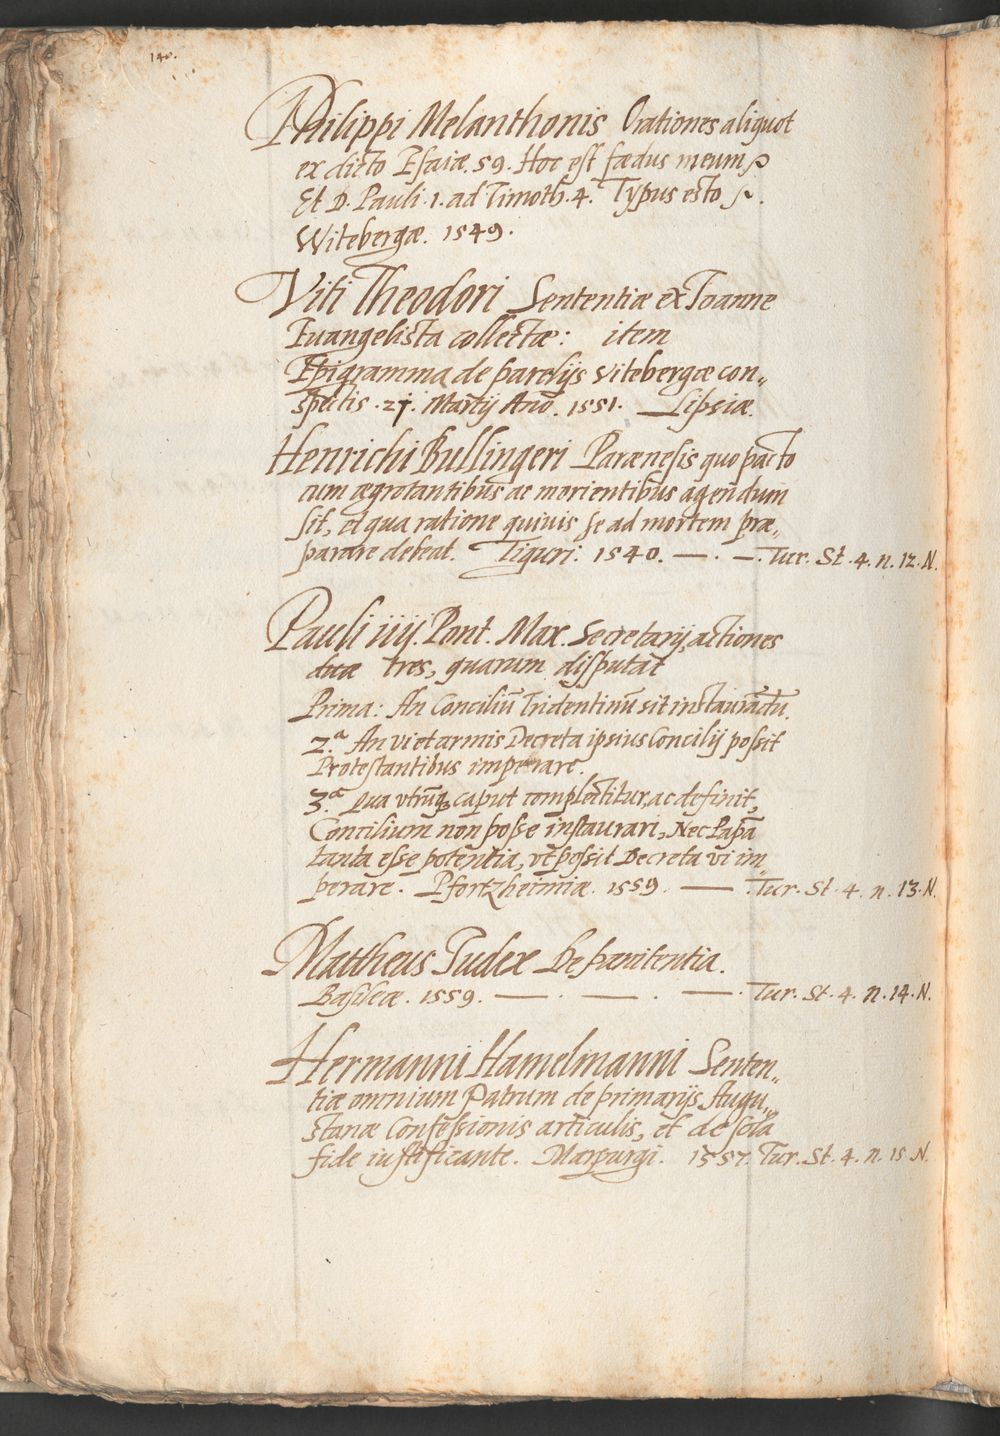 140.
Philippi Melanthonis Orationes aliquot
ex dicto Esaiæ. 59. Hoc est fædus meum
Et D. Pauli 1. ad Timoth. 4. Typus esto
Witebergæ. 1549.
Viti Theodori Sententiæ ex Joanne
Euangelista collectæ: item
Epigramma de parelijs Vitebergæ con„
spectis . 21. Martij Anō. 1551. Lipsiæ.
Henrichi Bullingeri Parænesis quo pacto
cum ægrotantibus ac morientibus agendum
sit, et qua ratione quiuis se ad mortem præ„
parare debeat. Tiguri. 1540. — . — . Tur. St. 4. n. 12. N.
Pauli iiij. Pont. Max. Secretarij, actiones
duæ tres, quarum disputat
Prima: An Conciliū Tridentinū sit instaurādū.
2.ª An vi et armis Decreta ipsius Concilij possit
Protestantibus imperare.
3.ª Qua vtrūq; caput complectitur, ac definit,
Concilium non posse instaurari, Nec Papā
tanta esse potentia, vt possit Decreta vi im„
perare. Pfortzheimiæ. 1559. — . Tur. St. 4. n. 13. N.
Mattheus Judex De pænitentia.
Basileæ. 1559. — . — . — . Tur. St. 4. n. 14. N.
Hermanni Hamelmanni Senten„
tiæ omnium Patrum de primarijs Augu„
stanæ Confessionis articulis, et de sola
fide iustificante. Marpurgi. 1557. Tur. St. 4. n. 15 N.